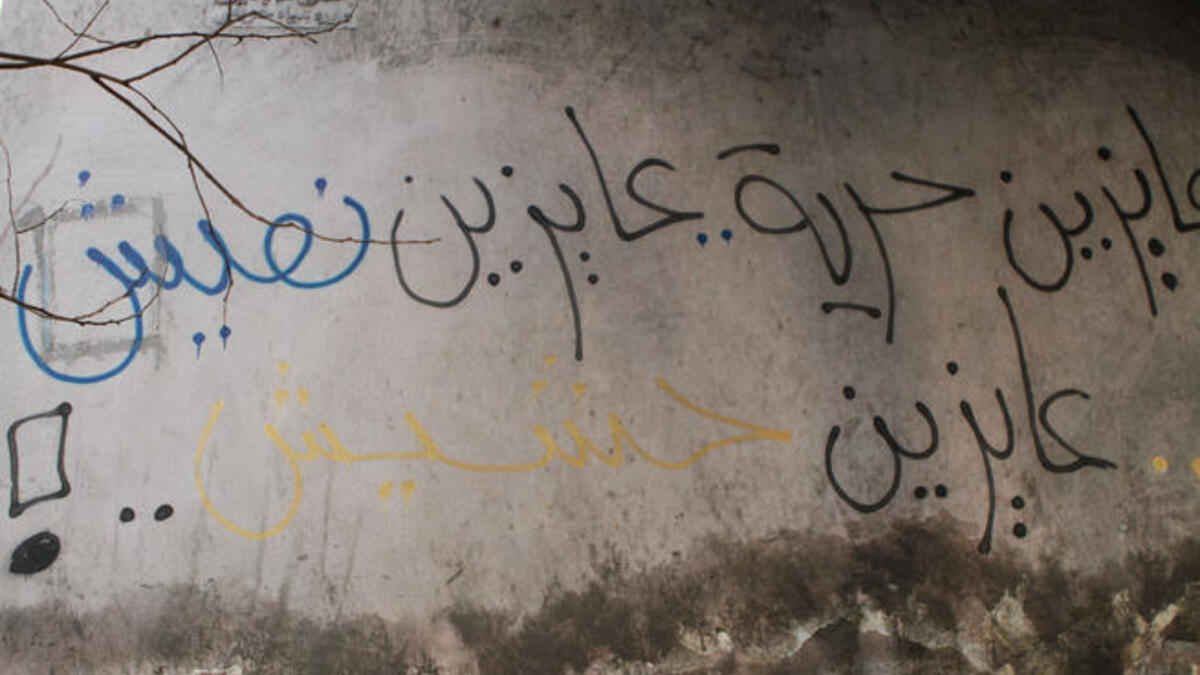 عايزين حرية .. عايزين نعيش
.. عايزين حشيش .. !